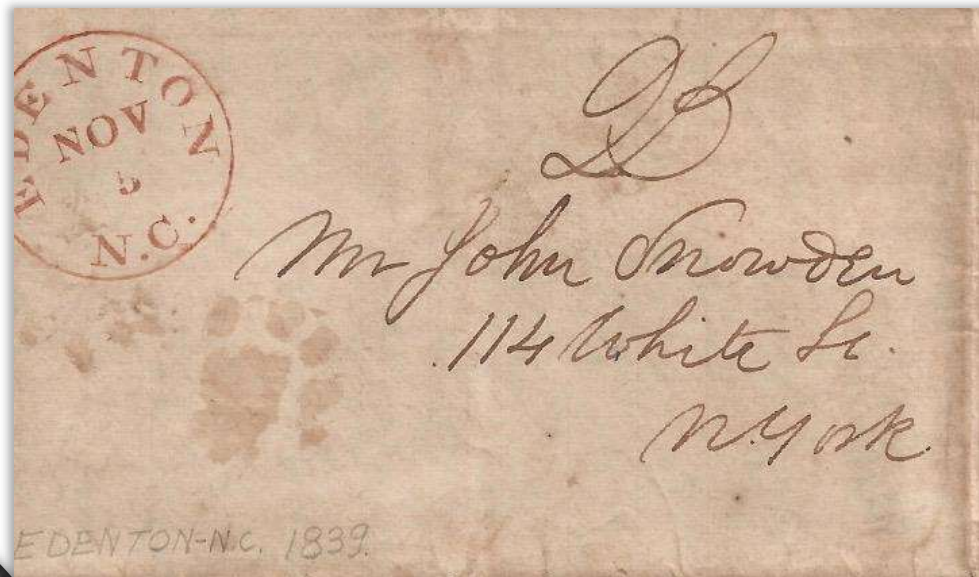 EDENTON
NOV
5
N.C.
Mr John Snowden
114 White St.
N. York.
EDENTON-N.C. 1839.